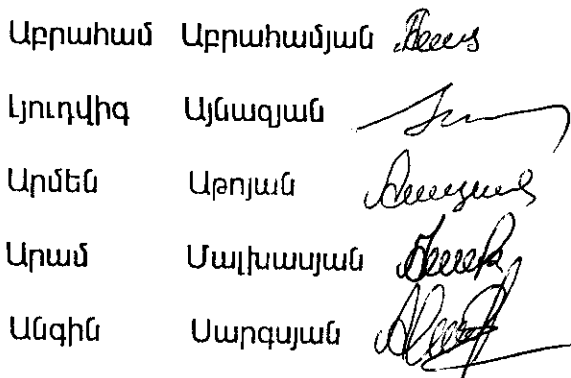 Աբրահամ Աբրահամյան
Լյուդվիգ Այնազյան
Արմեն Աթոյան
Արամ Մալխասյան
Անգին Սարգսյան